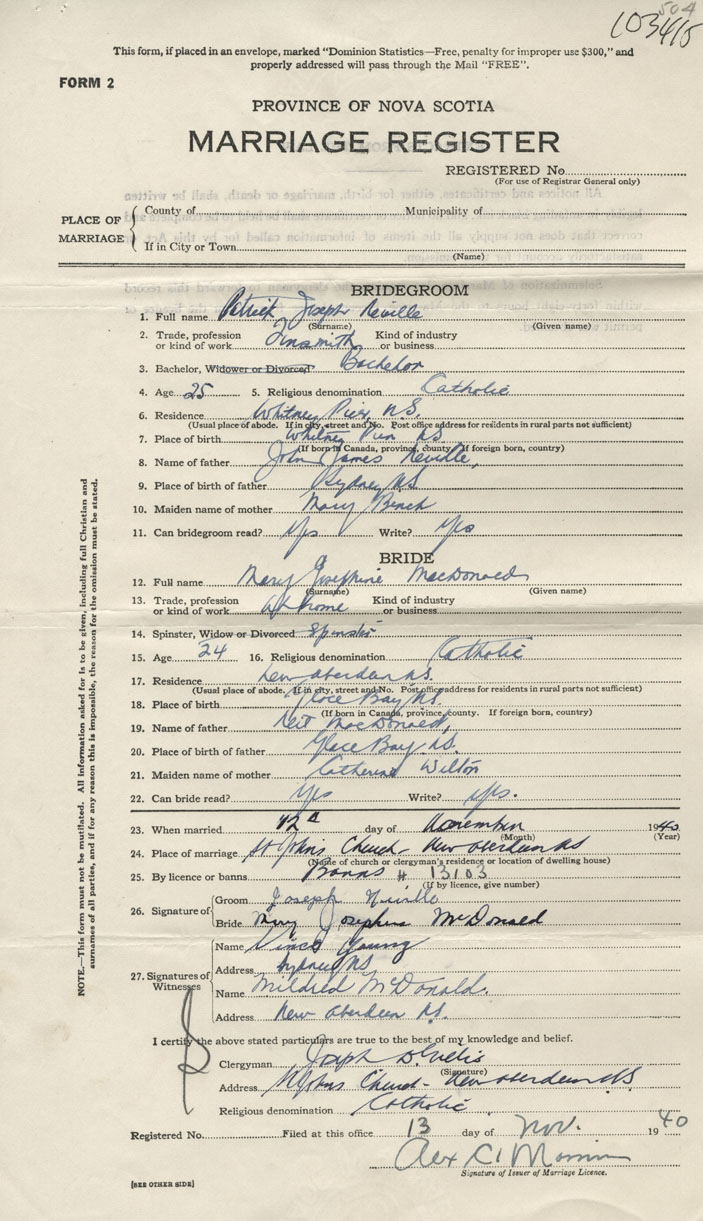 504
103415
This form, if placed in an envelope, marked "Dominion Statistics—Free, penalty for improper use $300," and
properly addressed will pass through the Mail "FREE".
FORM 2
PROVINCE OF NOVA SCOTIA
MARRIAGE REGISTER
REGISTERED No.
(For use of Registrar General only)
PLACE OF MARRIAGE
County of Municipality of
If in City or Town
(Name)
BRIDEGROOM
1. Full name Patrick Joseph Neville
(Surname) (Given name)
2. Trade, profession or kind of work Tinsmith Kind of industry or business
3. Bachelor, Widower or Divorced Bachelor
4. Age 25 5. Religious denomination Catholic
6. Residence Whitney Pier, N.S.
(Usual place of abode. If in city, street and No. Post office address for residents in rural parts not sufficient)
7. Place of birth Whitney Pier NS
(If born in Canada, province, county. If foreign born, country)
8. Name of father John James Neville,
9. Place of birth of father Sydney NS
10. Maiden name of mother Mary
11. Can bridegroom read? Yes Write? Yes
BRIDE
12. Full name Mary Josephine MacDonald
(Surname) (Given name)
13. Trade, profession or kind of work at home Kind of industry or business
14. Spinster, Widow or Divorced Spinster
15. Age 24 16. Religious denomination Catholic
17. Residence New Aberdeen NS.
(Usual place of abode. If in city, street and No. Post office address for residents in rural parts not sufficient)
18. Place of birth Glace Bay NS
(If born in Canada, province, county. If foreign born, country)
19. Name of father MacDonald,
20. Place of birth of father Glace Bay NS.
21. Maiden name of mother Catherine Wilton
22. Can bride read? Yes Write? Yes.
23. When married 12th day of November 1940
(Month) (Year)
24. Place of marriage St Johns Church - New Aberdeen NS
(Name of church or clergyman's residence or location of dwelling house)
25. By licence or banns Banns # 13103
(If by licence, give number)
26. Signature of
Groom Joseph Neville
Bride Mary Josephine McDonald
27. Signatures of Witnesses
Name Vince Young
Address Sydney NS
Name Mildred McDonald.
Address New Aberdeen NS.
I certify the above stated particulars are true to the best of my knowledge and belief.
Clergyman Joseph
(Signature)
Address St Johns Church - New Aberdeen NS
Religious denomination Catholic
Registered No. Filed at this office 13 day of Nov. 1940
Alex
Signature of Issuer of Marriage Licence.
[SEE OTHER SIDE]
NOTE.—This form must not be mutilated. All information asked for is to be given, including full Christian and
surnames of all parties, and if for any reason this is impossible, the reason for the omission must be stated.